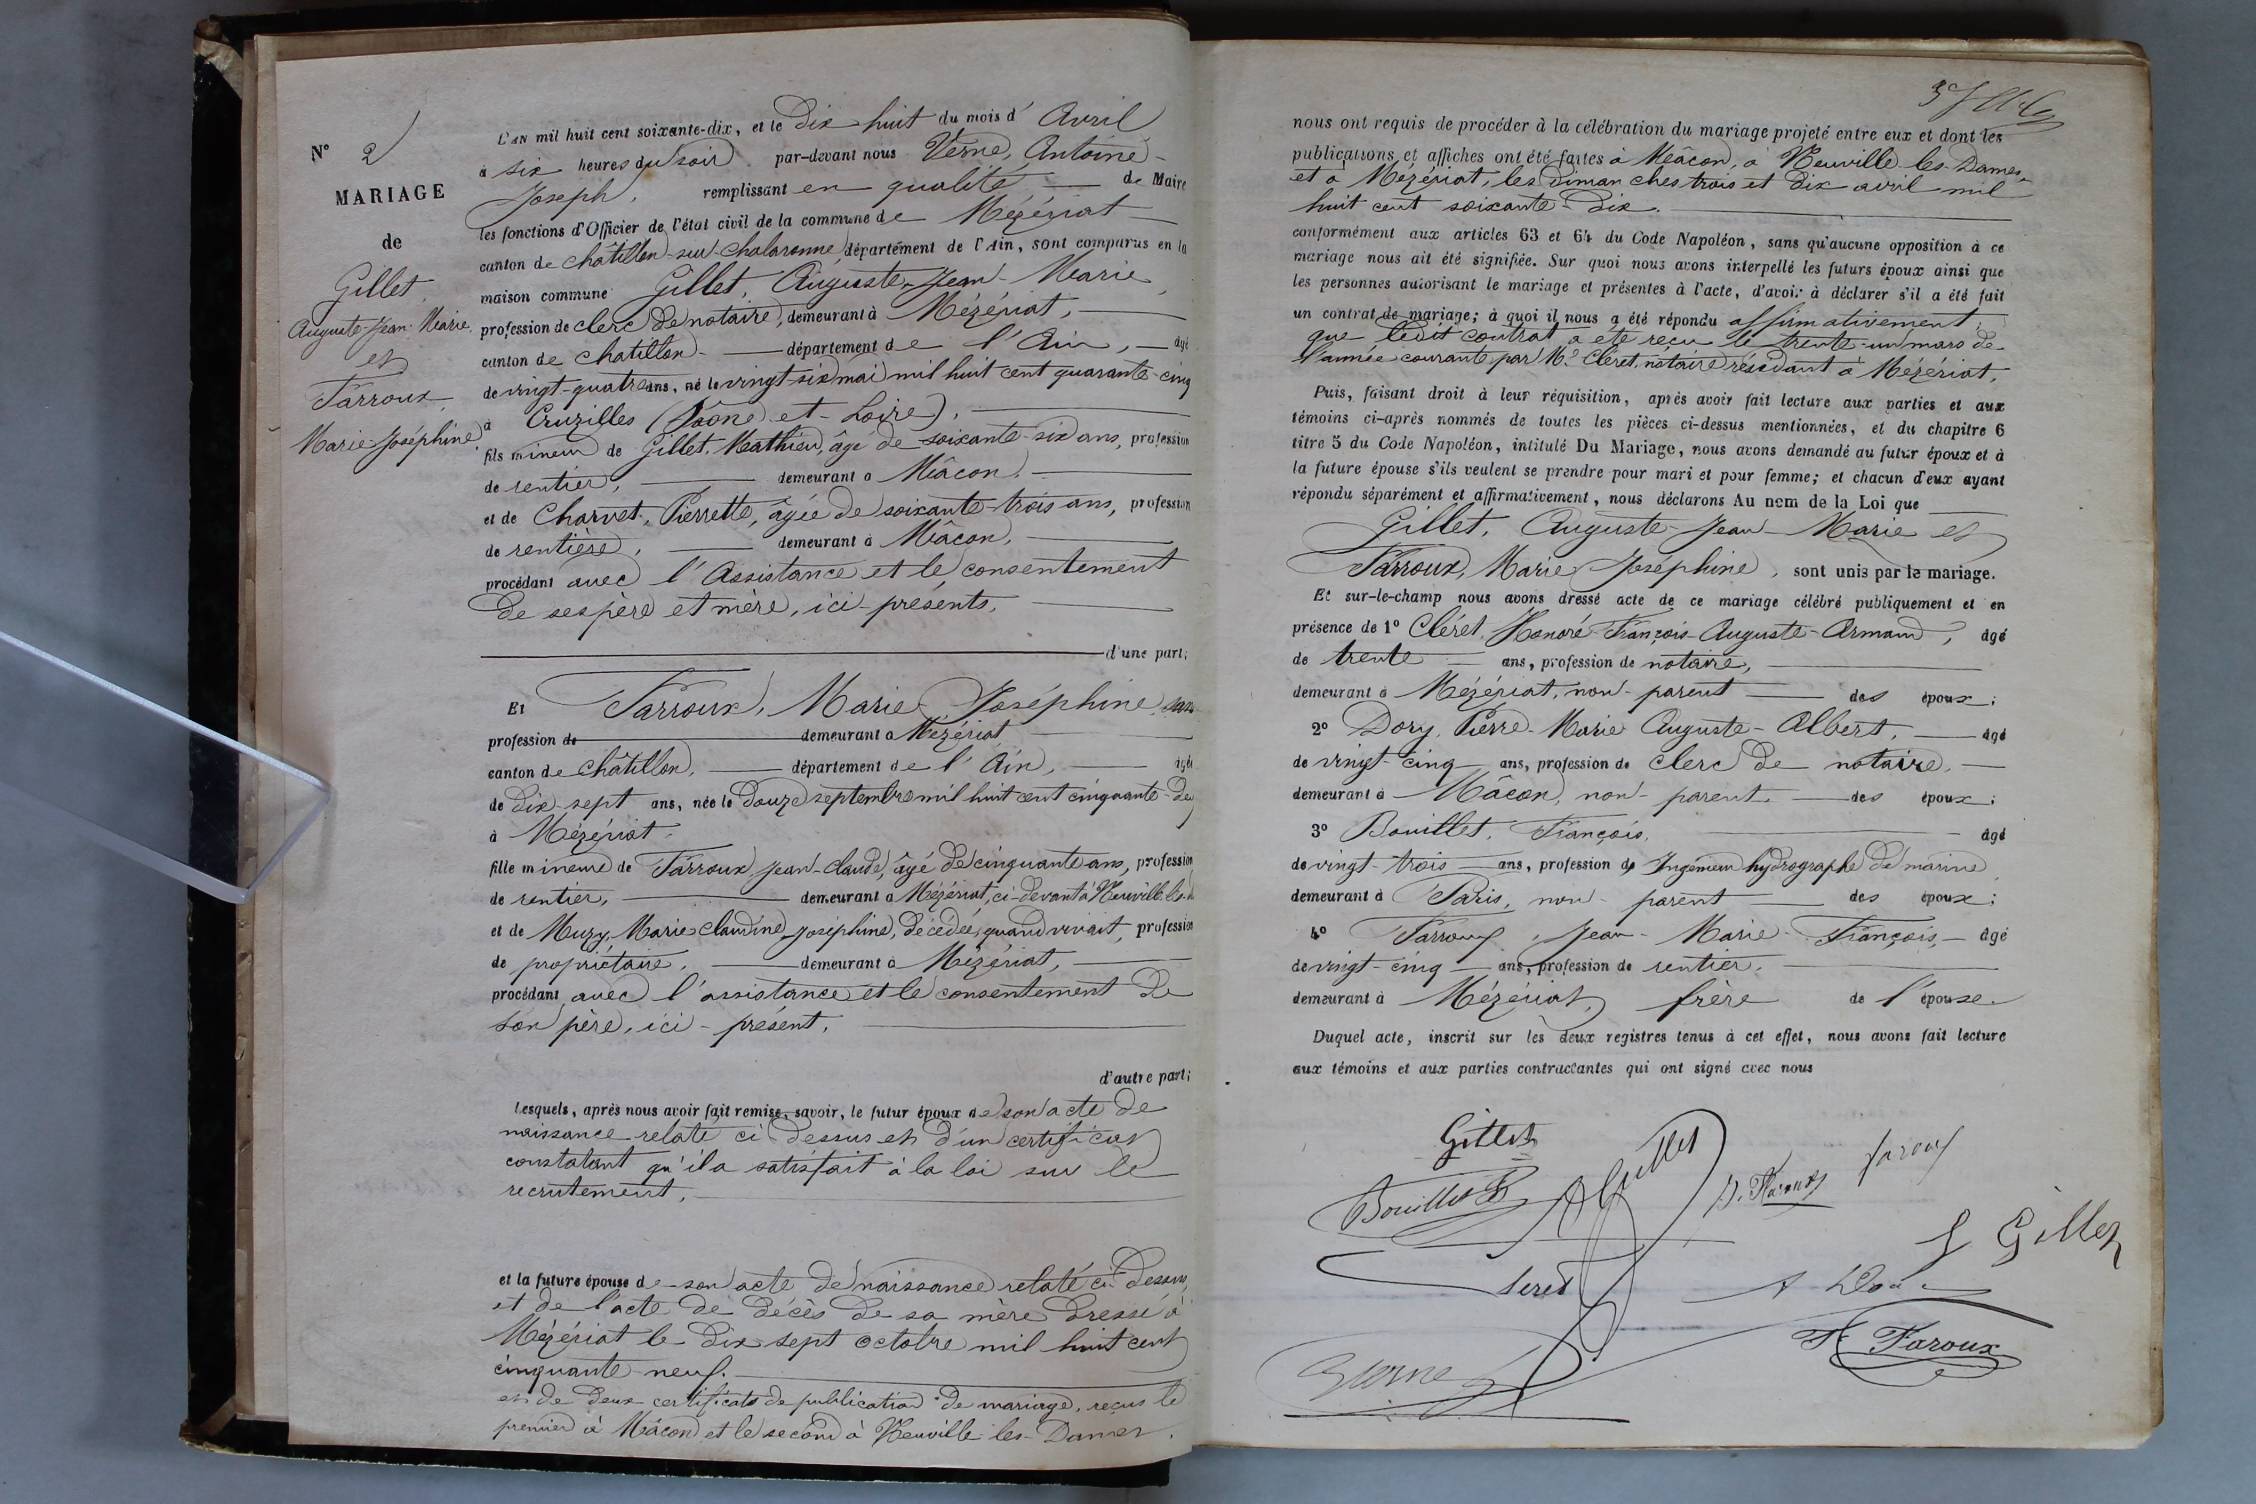 N° 2
MARIAGE
de
Gillet,
Auguste-Jean-Marie,
et
Farroux,
Marie-Joséphine,
L'AN mil huit cent soixante-dix, et le Dix huit du mois d' Avril
à six heures du soir par-devant nous Verne, Antoine-
Joseph, remplissant en qualité de Maire
les fonctions d'Officier de l'état civil de la commune de Mézériat
canton de Châtillon-sur-Chalaronne, département de l'Ain, sont comparus en la
maison commune Gillet, Auguste-Jean-Marie,
profession de clerc de notaire, demeurant à Mézériat,
canton de chatillon département de l'Ain, âgé
de vingt-quatre ans, né le vingt-six mai mil huit cent quarante-cinq
à Cruzilles (Saône-et-Loire),
fils mineur de Gillet, Mathieu, âgé de soixante-six ans, profession
de rentier, demeurant à Mâcon,
et de Charvet, Pierrette, âgée de soixante-trois ans, profession
de rentière, demeurant à Mâcon,
procédant avec l'Assistance et le consentement
de ses père et mère, ici-présents,
d'une part;
Et Farroux, Marie Joséphine, sans
profession de demeurant à Mézériat
canton de Châtillon, département de l'Ain, âgée
de dix-sept ans, née le Douze septembre mil huit cent cinquante-deux
à Mézériat.
fille mineure de Farroux, Jean-Claude, âgé de cinquante ans, profession
de rentier, demeurant à Mézériat, ci-devant à Neuville-les-
et de Muzy, Marie Claudine Joséphine, décédée, quand vivait, profession
de propriétaire, demeurant à Mézériat,
procédant avec l'assistance et le consentement de
son père, ici-présent,
d'autre part;
Lesquels, après nous avoir fait remise, savoir, le futur époux de son acte de
naissance relaté ci dessus et d'un certificat
constatant qu'il a satisfait à la loi sur le
recrutement,
et la future épouse de son acte de naissance relaté ci-dessus,
et de l'acte de décès de sa mère dressé à
Mézériat le dix sept octobre mil huit cent
cinquante-neuf.
et de deux certificats de publication de mariage, reçus le
premier à Mâcon et le second à Neuville-les-Dames.
nous ont requis de procéder à la célébration du mariage projeté entre eux et dont les
publications et affiches ont été faites à Mâcon, à Neuville-les-Dames,
et à Mézériat, les dimanches trois et dix avril mil
huit cent soixante-dix.
conformément aux articles 63 et 64 du Code Napoléon, sans qu'aucune opposition à ce
mariage nous ait été signifiée. Sur quoi nous avons interpellé les futurs époux ainsi que
les personnes autorisant le mariage et présentes à l'acte, d'avoir à déclarer s'il a été fait
un contrat de mariage; à quoi il nous a été répondu affirmativement,
que ledit contrat a été reçu le trente-un mars de
l'année courante par Me Cléret, notaire résidant à Mézériat.
Puis, faisant droit à leur réquisition, après avoir fait lecture aux parties et aux
témoins ci-après nommés de toutes les pièces ci-dessus mentionnées, et du chapitre 6
titre 5 du Code Napoléon, intitulé Du Mariage, nous avons demandé au futur époux et à
la future épouse s'ils veulent se prendre pour mari et pour femme; et chacun d'eux ayant
répondu séparément et affirmativement, nous déclarons Au nom de la Loi que
Gillet, Auguste-Jean-Marie et
Farroux, Marie Joséphine, sont unis par le mariage.
Et sur-le-champ nous avons dressé acte de ce mariage célébré publiquement et en
présence de 1° Cléret, Honoré-François-Auguste-Armand, âgé
de trente ans, profession de notaire,
demeurant à Mézériat, non-parent des époux;
2° Dory, Pierre-Marie Auguste-Albert, âgé
de vingt-cinq ans, profession de clerc de notaire,
demeurant à Mâcon, non-parent des époux;
3° Bouillet, François, âgé
de vingt-trois ans, profession de Ingénieur hydrographe de marine,
demeurant à Paris, non-parent des époux;
4° Farroux, Jean-Marie-François, âgé
de vingt-cinq ans, profession de rentier,
demeurant à Mézériat, frère de l'épouse.
Duquel acte, inscrit sur les deux registres tenus à cet effet, nous avons fait lecture
aux témoins et aux parties contractantes qui ont signé avec nous
Gillet
A Gillet
Faroux
Bouillet F
J. Faroux
G Gillet
Cleret
A Do
F Faroux
Verne